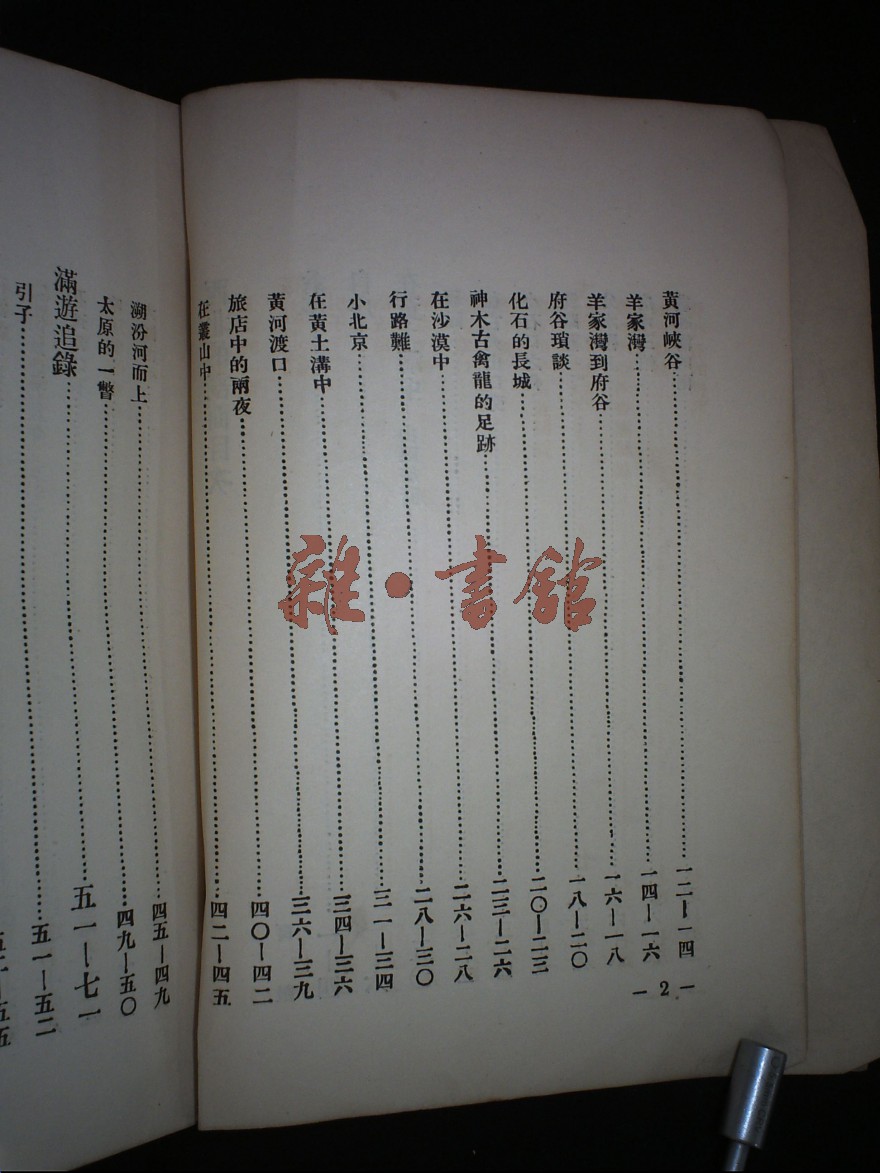 黃河峽谷……一二—一四
羊家灣……一四—一六
羊家灣到府谷……一六—一八
府谷瑣談……一八—二〇
化石的長城……二〇—二三
神木古禽龍的足跡……二三—二六
在沙漠中……二六—二八
行路難……二八—三〇
小北京……三一—三四
在黃土溝中……三四—三六
黃河渡口……三六—三九
旅店中的兩夜……四〇—四二
在叢山中……四二—四五
— 2 —
溯汾河而上……四五—四九
太原的一瞥……四九—五〇
滿遊追錄……五一—七一
引子……五一—五二
雜·書舘